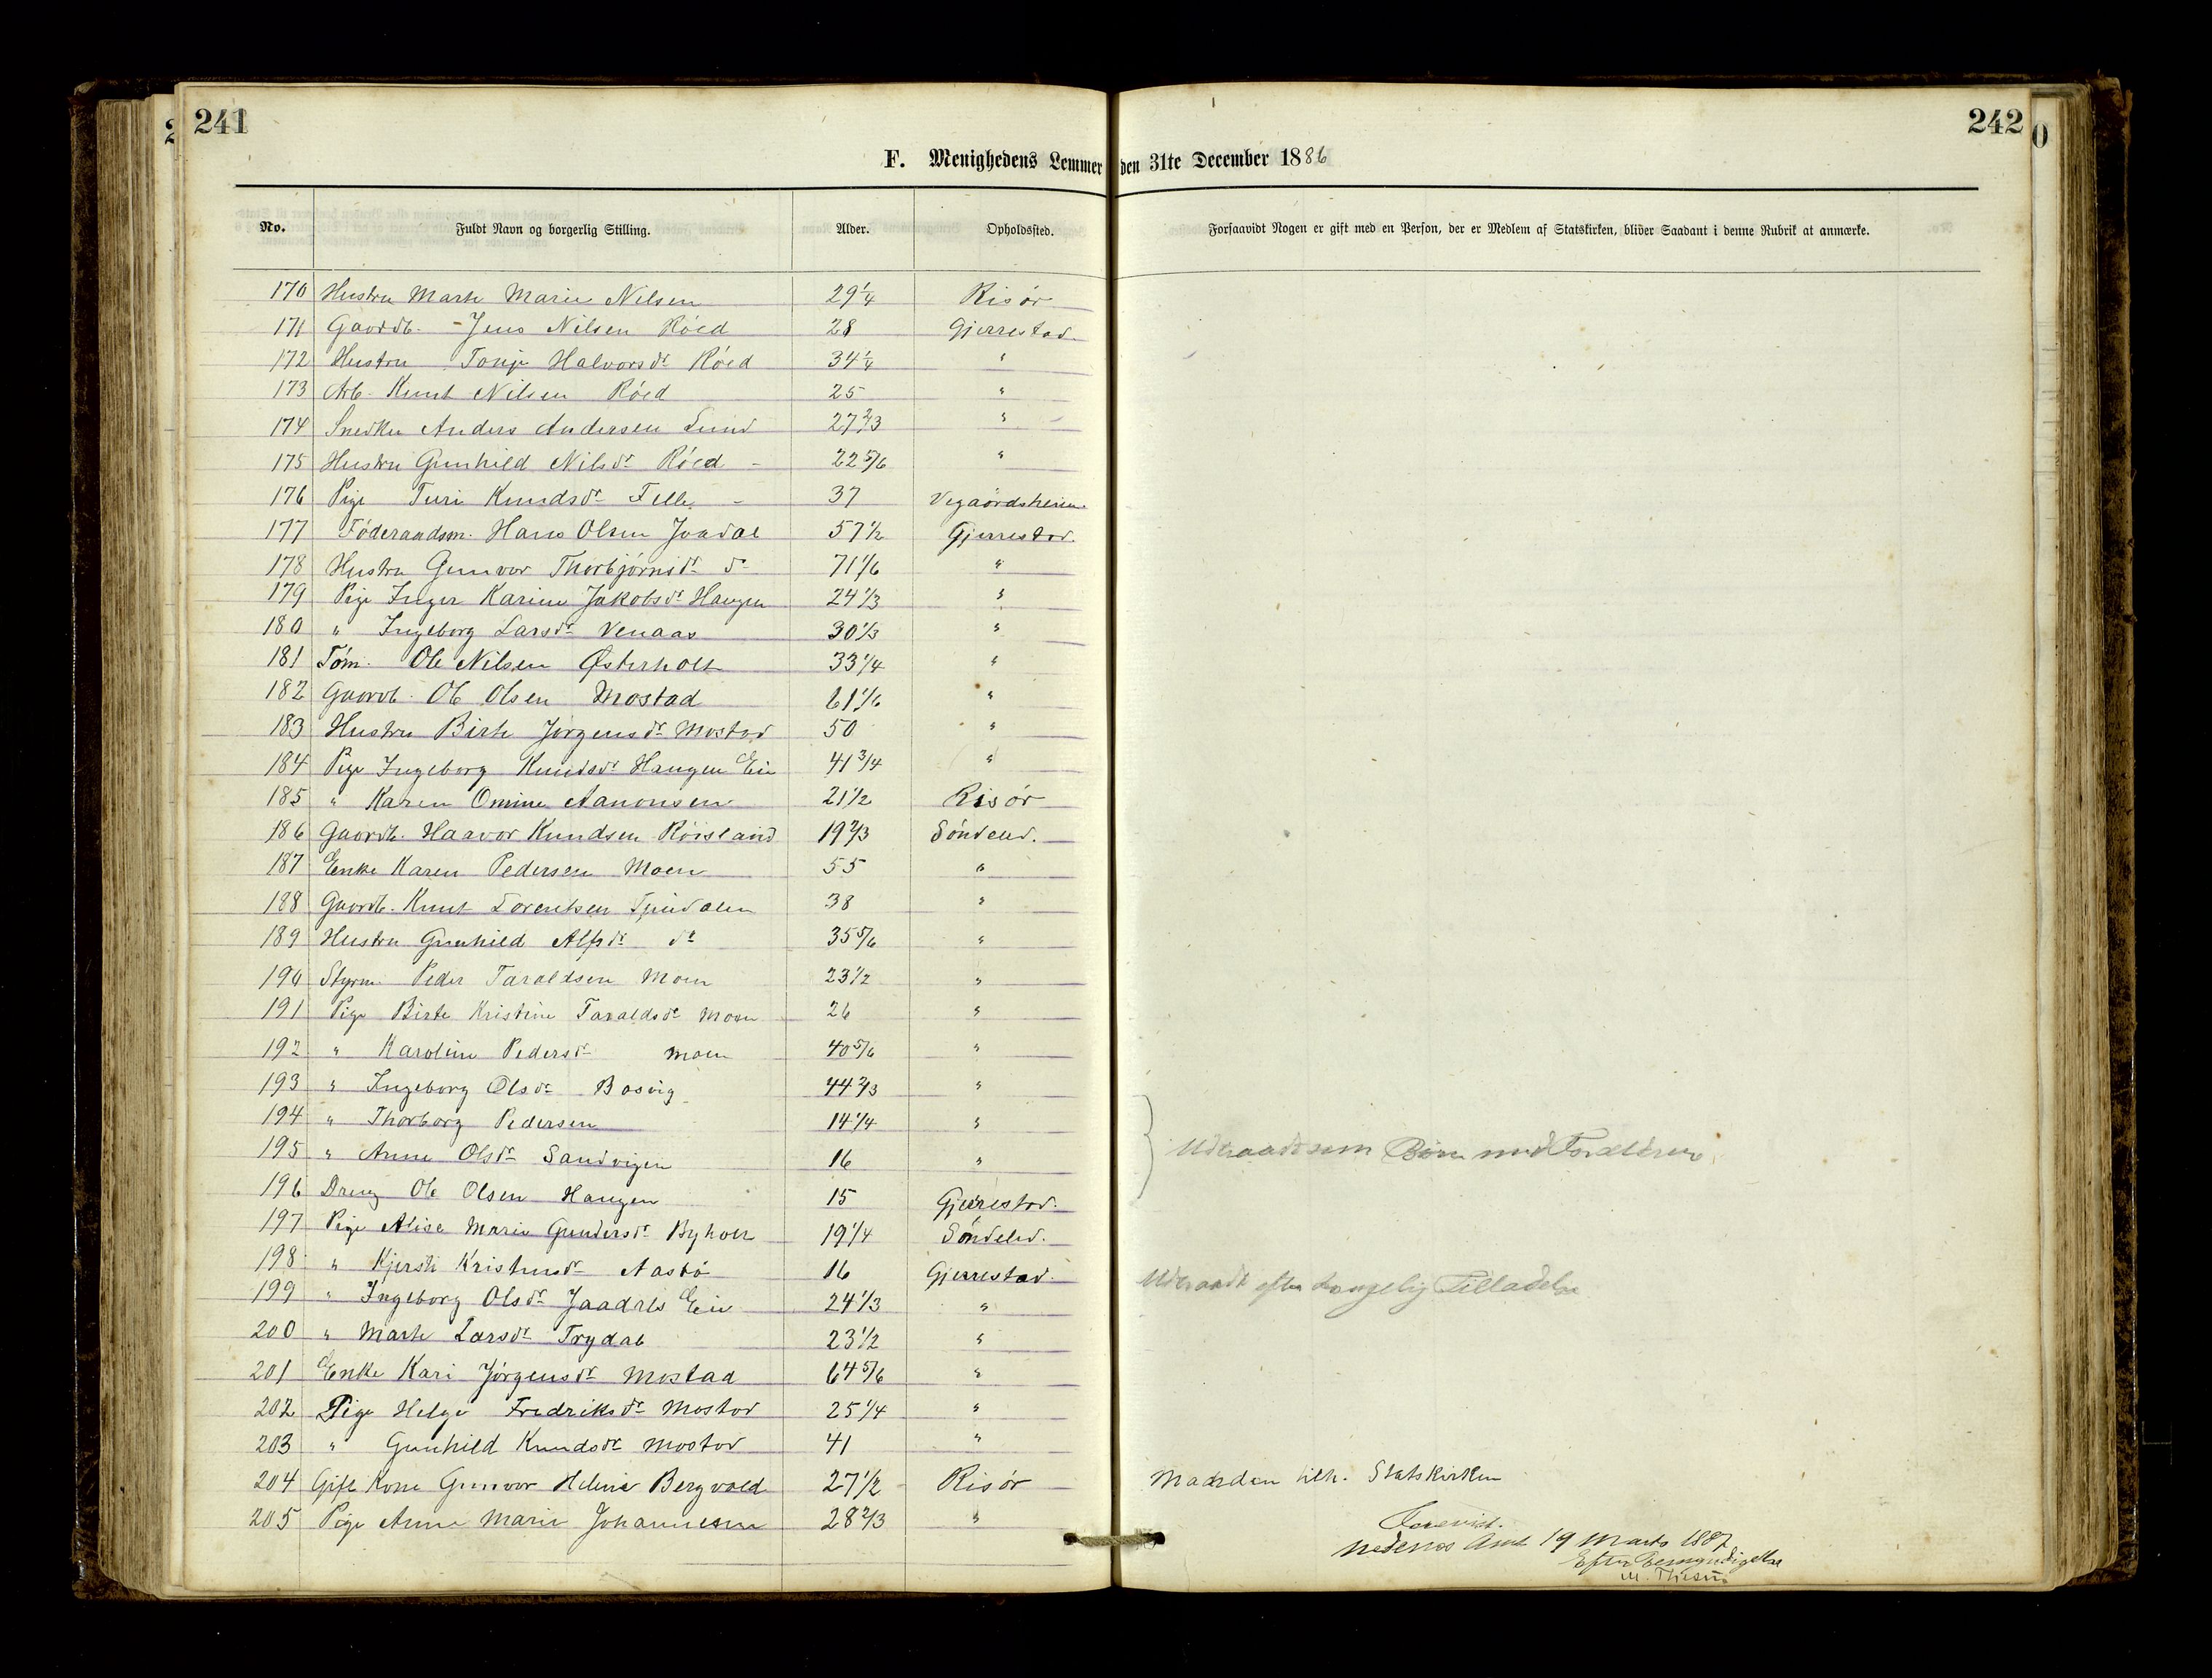 241
242
F. Menighedens Lemmer den 31te December 1886
No. Fuldt Navn og borgerlig Stilling. Alder. Opholdssted. Forsaavidt Nogen er gift med en Person, der er Medlem af Statskirken, bliver Saadant i denne Rubrik at anmærke.
170 Hustru Marte Marie Nilsen 29 1/4 Risör
171 Gaardb. Jens Nilsen Röed 28 Gjerrestad
172 Hustru Tonje Halvorsdr Röed 34 1/4 "
173 Arb. Knut Nilsen Röed 25 "
174 Snedker Anders Andersen Lund 27 2/3 "
175 Hustru Gunhild Nilsdr Röed 22 5/6 "
176 Pige Turi Knudsdr Felle 37 Vegaardsheien
177 Föderaadsm. Hans Olsen Jordal 57 1/2 Gjerrestad
178 Hustru Gunvor Thorbjörnsdr do 71 1/6 "
179 Pige Inger Karine Jakobsdr Haugen 24 1/3 "
180 " Ingeborg Larsdr Venaas 30 1/3 "
181 Töm. Ole Nilsen Østerholt 33 1/4 "
182 Gaardb. Ole Olsen Mostad 61 1/6 "
183 Hustru Birte Jörgensdr Mostad 50 "
184 Pige Ingeborg Knudsdr Haugen Eie 41 3/4 "
185 " Karen Omine Aanonsen 21 1/2 Risör
186 Gaardb. Haavor Knudsen Röisland 19 2/3 Söndeled.
187 Enke Karen Pedersen Moen 55 "
188 Gaardb. Knut Lorentsen 38 "
189 Hustru Gunhild Alfsdr do 35 5/6 "
190 Styrm. Peder Taraldsen Moen 23 1/2 "
191 Pige Birte Kristine Taraldsdr Moen 26 "
192 " Karoline Pedersdr Moen 40 5/6 "
193 " Ingeborg Olsdr Bosvig 44 2/3 "
194 " Thorborg Pedersen 14 1/4 "
195 " Anne Olsdr Sandvigen 16 " } Udtraadt som Børn med Forældrene
196 Dreng Ole Olsen Haugen 15 Gjerrestad.
197 Pige Alise Marie Gundersdr Byholt 19 1/4 Söndeled.
198 " Kjersti Kristensdr Aastö 16 Gjerrestad.
199 " Ingeborg Olsdr Jaadals Eie 24 1/3 " Udtraadt efter Tilladelse
200 " Marte Larsdr Trydal 23 1/2 "
201 Enke Kari Jörgensdr Mostad 64 5/6 "
202 Pige Helge Fredriksdr Mostad 25 1/4 "
203 " Gunhild Knudsdr Mostad 41 "
204 Gift Kone Gunvor Helene Bergvald 27 1/2 Risör Manden tilh. Statskirken
205 Pige Anne Marie Johannesen 28 2/3 "
Nedenes Amt 19 Marts 1887
Efter Bemyndigelse